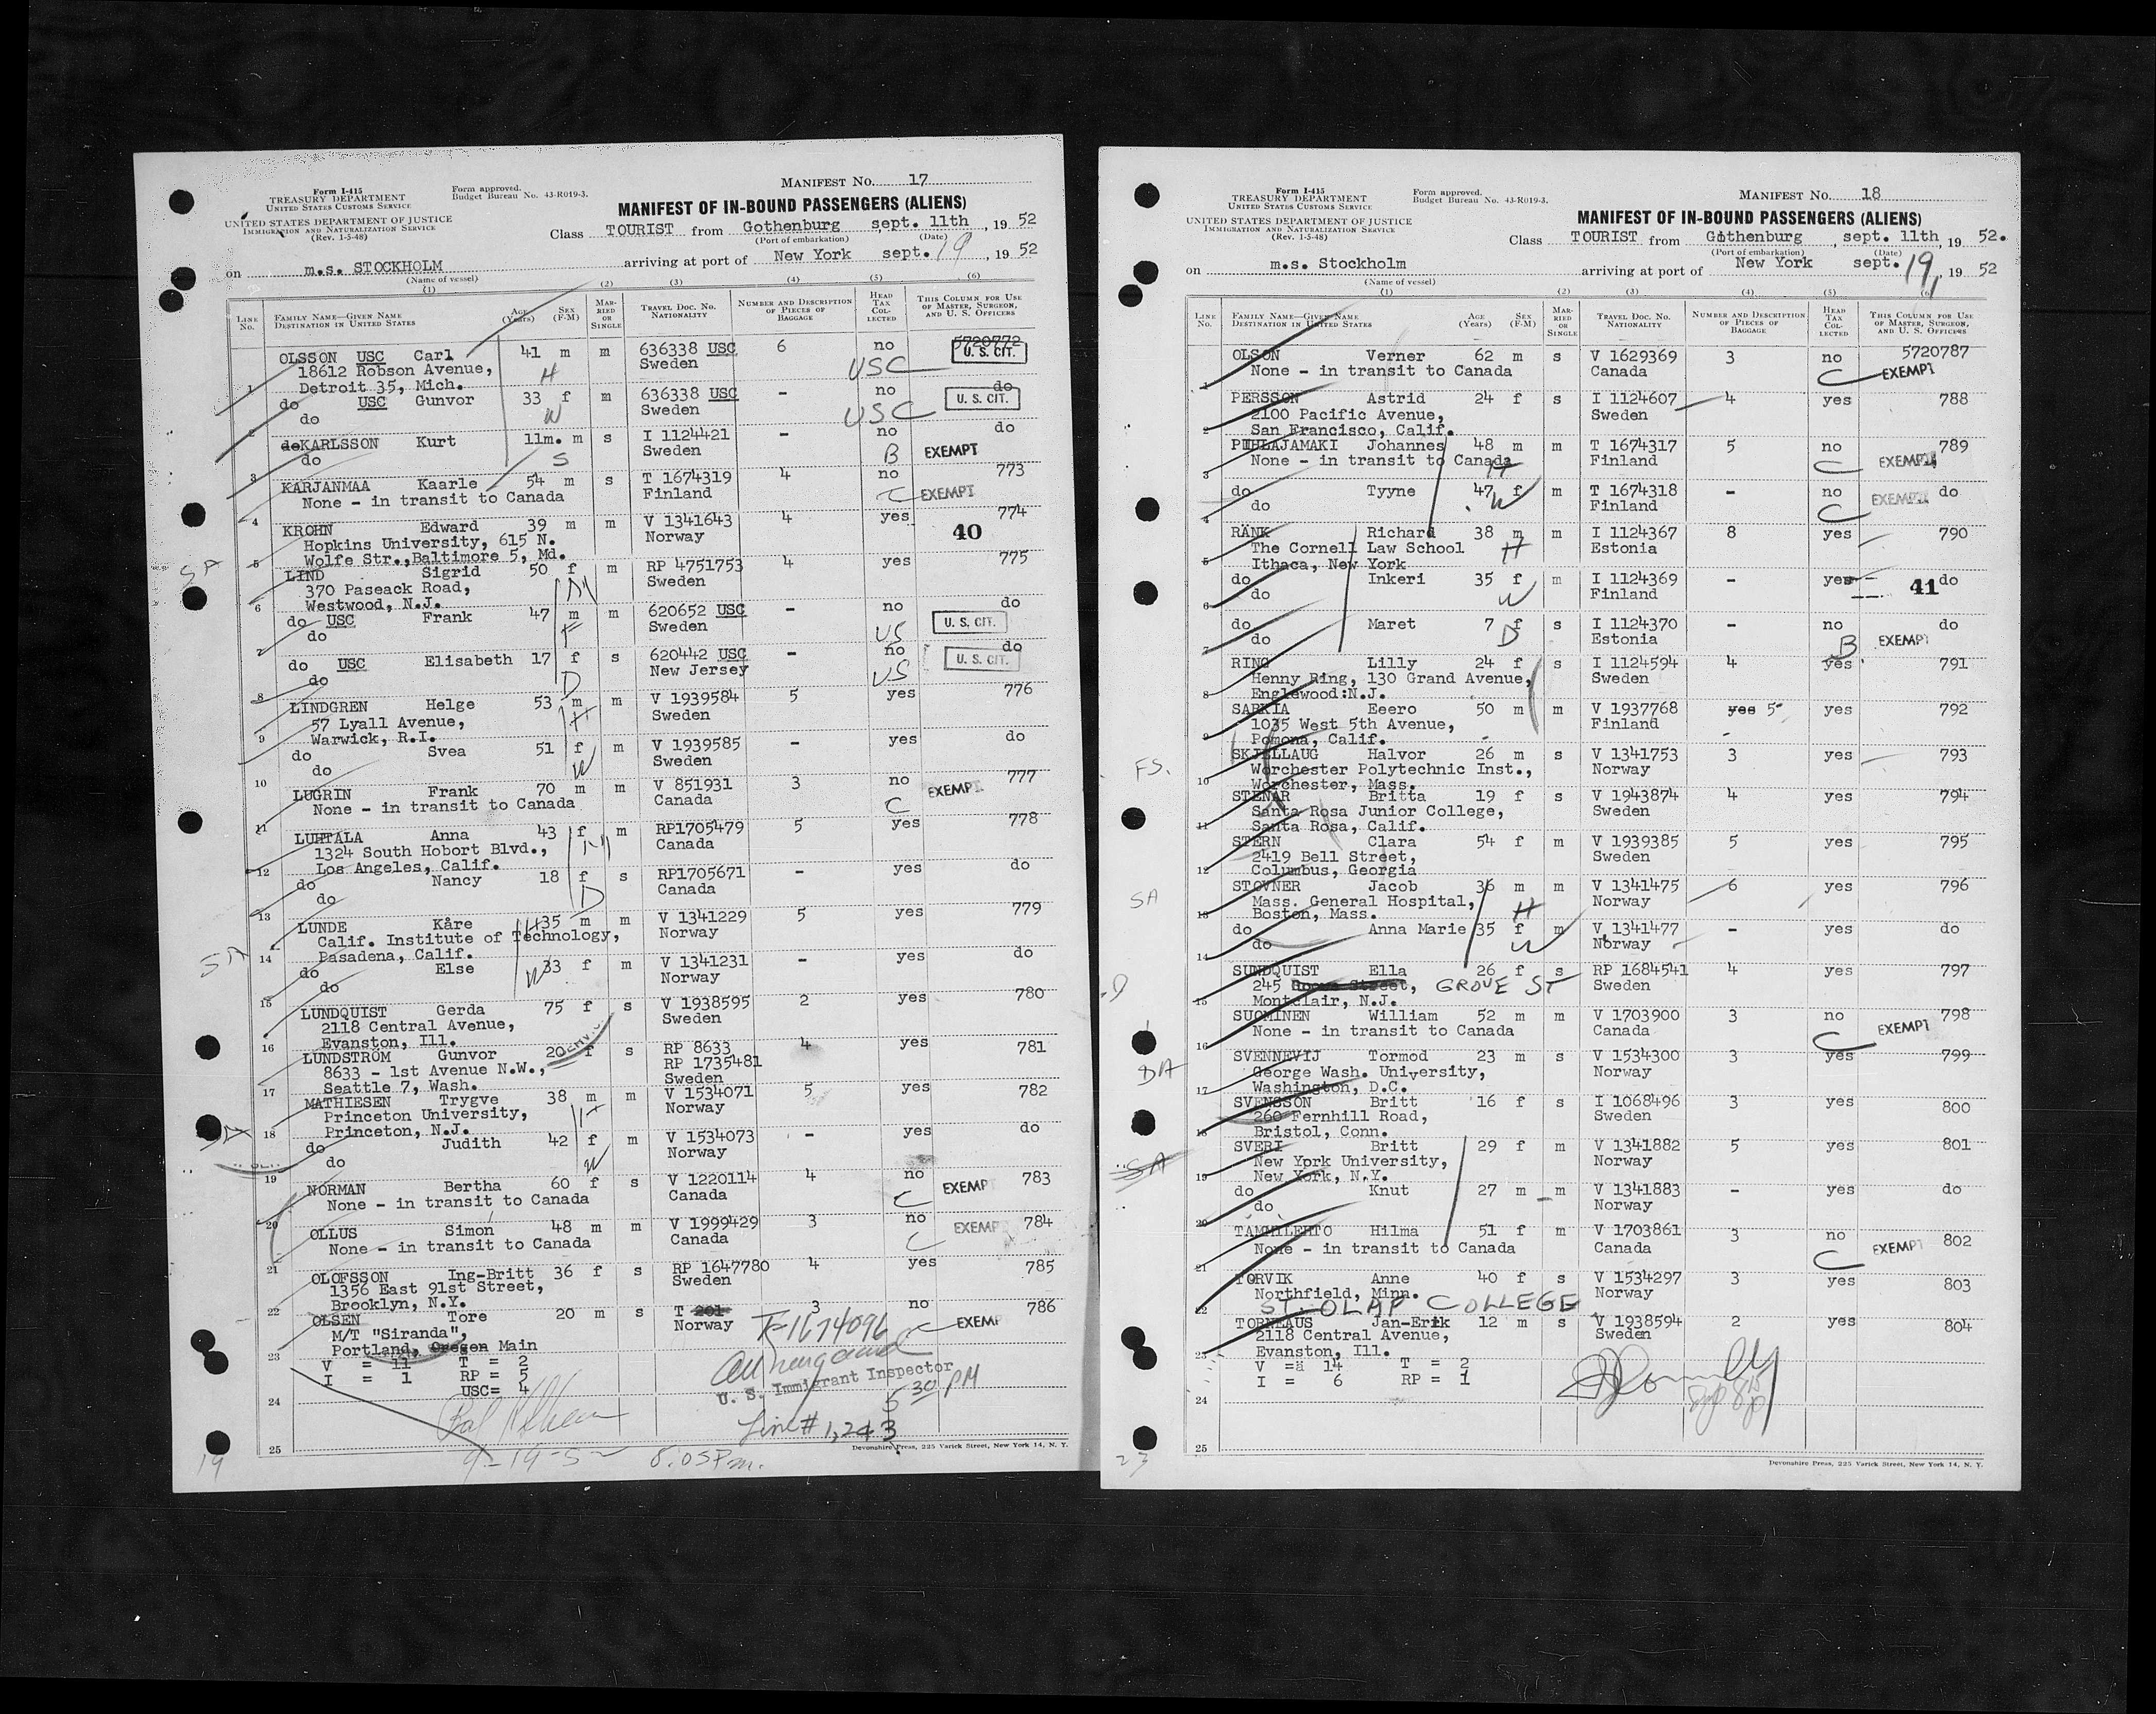 Form I-415
TREASURY DEPARTMENT
UNITED STATES CUSTOMS SERVICE
UNITED STATES DEPARTMENT OF JUSTICE
IMMIGRATION AND NATURALIZATION SERVICE
(Rev. 1-5-48)
Form approved.
Budget Bureau No. 43-R019-3.
MANIFEST No. 17
MANIFEST OF IN-BOUND PASSENGERS (ALIENS)
Class TOURIST from Gothenburg sept. 11th, 19 52
(Port of embarkation) (Date)
on m.s. STOCKHOLM arriving at port of New York sept. 19, 19 52
(Name of vessel)
(1) (2) (3) (4) (5) (6)
LINE No. FAMILY NAME—GIVEN NAME DESTINATION IN UNITED STATES AGE (Years) SEX (F-M) MARRIED OR SINGLE TRAVEL DOC. NO. NATIONALITY NUMBER AND DESCRIPTION OF PIECES OF BAGGAGE HEAD TAX COLLECTED THIS COLUMN FOR USE OF MASTER, SURGEON, AND U. S. OFFICERS
OLSSON USC Carl 41 m m 636338 USC 6 no 5720772
18612 Robson Avenue, H Sweden USC U. S. CIT.
1 Detroit 35, Mich.
do USC Gunvor 33 f m 636338 USC - no do
2 do W Sweden USC U. S. CIT.
do KARLSSON Kurt 11m. m s I 1124421 - no do
3 do S Sweden B EXEMPT
KARJANMAA Kaarle 54 m s T 1674319 4 no 773
4 None - in transit to Canada Finland C EXEMPT
KROHN Edward 39 m m V 1341643 4 yes 774
Hopkins University, 615 N. Norway 40
SA 5 Wolfe Str., Baltimore 5, Md.
LIND Sigrid 50 f m RP 4751753 4 yes 775
370 Paseack Road, M Sweden
6 Westwood, N.J.
do USC Frank 47 m m 620652 USC - no do
7 do F Sweden US U. S. CIT.
do USC Elisabeth 17 f s 620442 USC - no do
8 do D New Jersey US U. S. CIT.
LINDGREN Helge 53 m m V 1939584 5 yes 776
57 Lyall Avenue, H Sweden
9 Warwick, R.I.
do Svea 51 f m V 1939585 - yes do
10 do W Sweden
LUGRIN Frank 70 m m V 851931 3 no 777
11 None - in transit to Canada Canada C EXEMPT
LUHTALA Anna 43 f m RP1705479 5 yes 778
1324 South Hobort Blvd., M Canada
12 Los Angeles, Calif.
do Nancy 18 f s RP1705671 - yes do
13 do D Canada
LUNDE Kåre H 35 m m V 1341229 5 yes 779
Calif. Institute of Technology, Norway
SA 14 Pasadena, Calif.
do Else W 33 f m V 1341231 - yes do
15 do Norway
LUNDQUIST Gerda 75 f s V 1938595 2 yes 780
2118 Central Avenue, Sweden
16 Evanston, Ill.
LUNDSTRÖM Gunvor 20 f s RP 8633 4 yes 781
8633 - 1st Avenue N.W., RP 1735481
17 Seattle 7, Wash. Sweden
MATHIESEN Trygve 38 m m V 1534071 5 yes 782
Princeton University, H Norway
18 Princeton, N.J.
do Judith 42 f m V 1534073 - yes do
19 do W Norway
NORMAN Bertha 60 f s V 1220114 4 no 783
20 None - in transit to Canada Canada C EXEMPT
OLLUS Simon 48 m m V 1999429 3 no 784
21 None - in transit to Canada Canada C EXEMPT
OLOFSSON Ing-Britt 36 f s RP 1647780 4 yes 785
1356 East 91st Street, Sweden
22 Brooklyn, N.Y.
OLSEN Tore 20 m s T 201 3 no 786
M/T "Siranda", Norway T-1674096 C EXEMPT
23 Portland, Oregon Main
V = 11 T = 2
I = 1 RP = 5
USC= 4
U. S. Immigrant Inspector
5 30 PM
24
Line # 1,2 & 3
25
9-19-52 8.05 P.m.
19
Devonshire Press, 225 Varick Street, New York 14, N. Y.
Form I-415
TREASURY DEPARTMENT
UNITED STATES CUSTOMS SERVICE
UNITED STATES DEPARTMENT OF JUSTICE
IMMIGRATION AND NATURALIZATION SERVICE
(Rev. 1-5-48)
Form approved.
Budget Bureau No. 43-R019-3.
MANIFEST No. 18
MANIFEST OF IN-BOUND PASSENGERS (ALIENS)
Class TOURIST from Gothenburg, sept. 11th, 19 52.
(Port of embarkation) (Date)
on m.s. Stockholm arriving at port of New York sept. 19, 19 52
(Name of vessel)
(1) (2) (3) (4) (5) (6)
LINE No. FAMILY NAME—GIVEN NAME DESTINATION IN UNITED STATES AGE (Years) SEX (F-M) MARRIED OR SINGLE TRAVEL DOC. NO. NATIONALITY NUMBER AND DESCRIPTION OF PIECES OF BAGGAGE HEAD TAX COLLECTED THIS COLUMN FOR USE OF MASTER, SURGEON, AND U. S. OFFICERS
OLSON Verner 62 m s V 1629369 3 no 5720787
1 None - in transit to Canada Canada C EXEMPT
PERSSON Astrid 24 f s I 1124607 4 yes 788
2100 Pacific Avenue, Sweden
2 San Francisco, Calif.
PIHLAJAMAKI Johannes 48 m m T 1674317 5 no 789
3 None - in transit to Canada H Finland C EXEMPT
do Tyyne 47 f m T 1674318 - no do
4 do W Finland C EXEMPT
RÄNK Richard 38 m m I 1124367 8 yes 790
The Cornell Law School H Estonia
5 Ithaca, New York
do Inkeri 35 f m I 1124369 - yes do
6 do W Finland 41
do Maret 7 f s I 1124370 - no do
7 do D Estonia B EXEMPT
RING Lilly 24 f s I 1124594 4 yes 791
Henny Ring, 130 Grand Avenue, Sweden
8 Englewood:N.J.
SARKIA Eeero 50 m m V 1937768 yes 5 yes 792
1035 West 5th Avenue, Finland
9 Pomona, Calif.
SKJELLAUG Halvor 26 m s V 1341753 3 yes 793
FS. Worchester Polytechnic Inst., Norway
10 Worchester, Mass.
STENAR Britta 19 f s V 1943874 4 yes 794
Santa Rosa Junior College, Sweden
11 Santa Rosa, Calif.
STERN Clara 54 f m V 1939385 5 yes 795
2419 Bell Street, Sweden
12 Columbus, Georgia
STOVNER Jacob 36 m m V 1341475 6 yes 796
SA Mass. General Hospital, H Norway
13 Boston, Mass.
do Anna Marie 35 f m V 1341477 - yes do
14 do W Norway
SUNDQUIST Ella 26 f s RP 1684541 4 yes 797
245 Street, GROVE ST Sweden
15 Montclair, N.J.
SUOMINEN William 52 m m V 1703900 3 no 798
16 None - in transit to Canada Canada C EXEMPT
SVENNEVIJ Tormod 23 m s V 1534300 3 yes 799
George Wash. University, Norway
17 Washington, D.C.
SVENSSON Britt 16 f s I 1068496 3 yes 800
260 Fernhill Road, Sweden
18 Bristol, Conn.
SVERI Britt 29 f m V 1341882 5 yes 801
SA New York University, Norway
19 New York, N.Y.
do Knut 27 m m V 1341883 - yes do
20 do Norway
TAMMILEHTO Hilma 51 f m V 1703861 3 no 802
21 None - in transit to Canada Canada C EXEMPT
TORVIK Anne 40 f s V 1534297 3 yes 803
Northfield, Minn. Norway
22 ST. OLAF COLLEGE
TORNEAUS Jan-Erik 12 m s V 1938594 2 yes 804
2118 Central Avenue, Sweden
23 Evanston, Ill.
V =ä 14 T = 2
I = 6 RP = 1
24
25
23
Devonshire Press, 225 Varick Street, New York 14, N. Y.